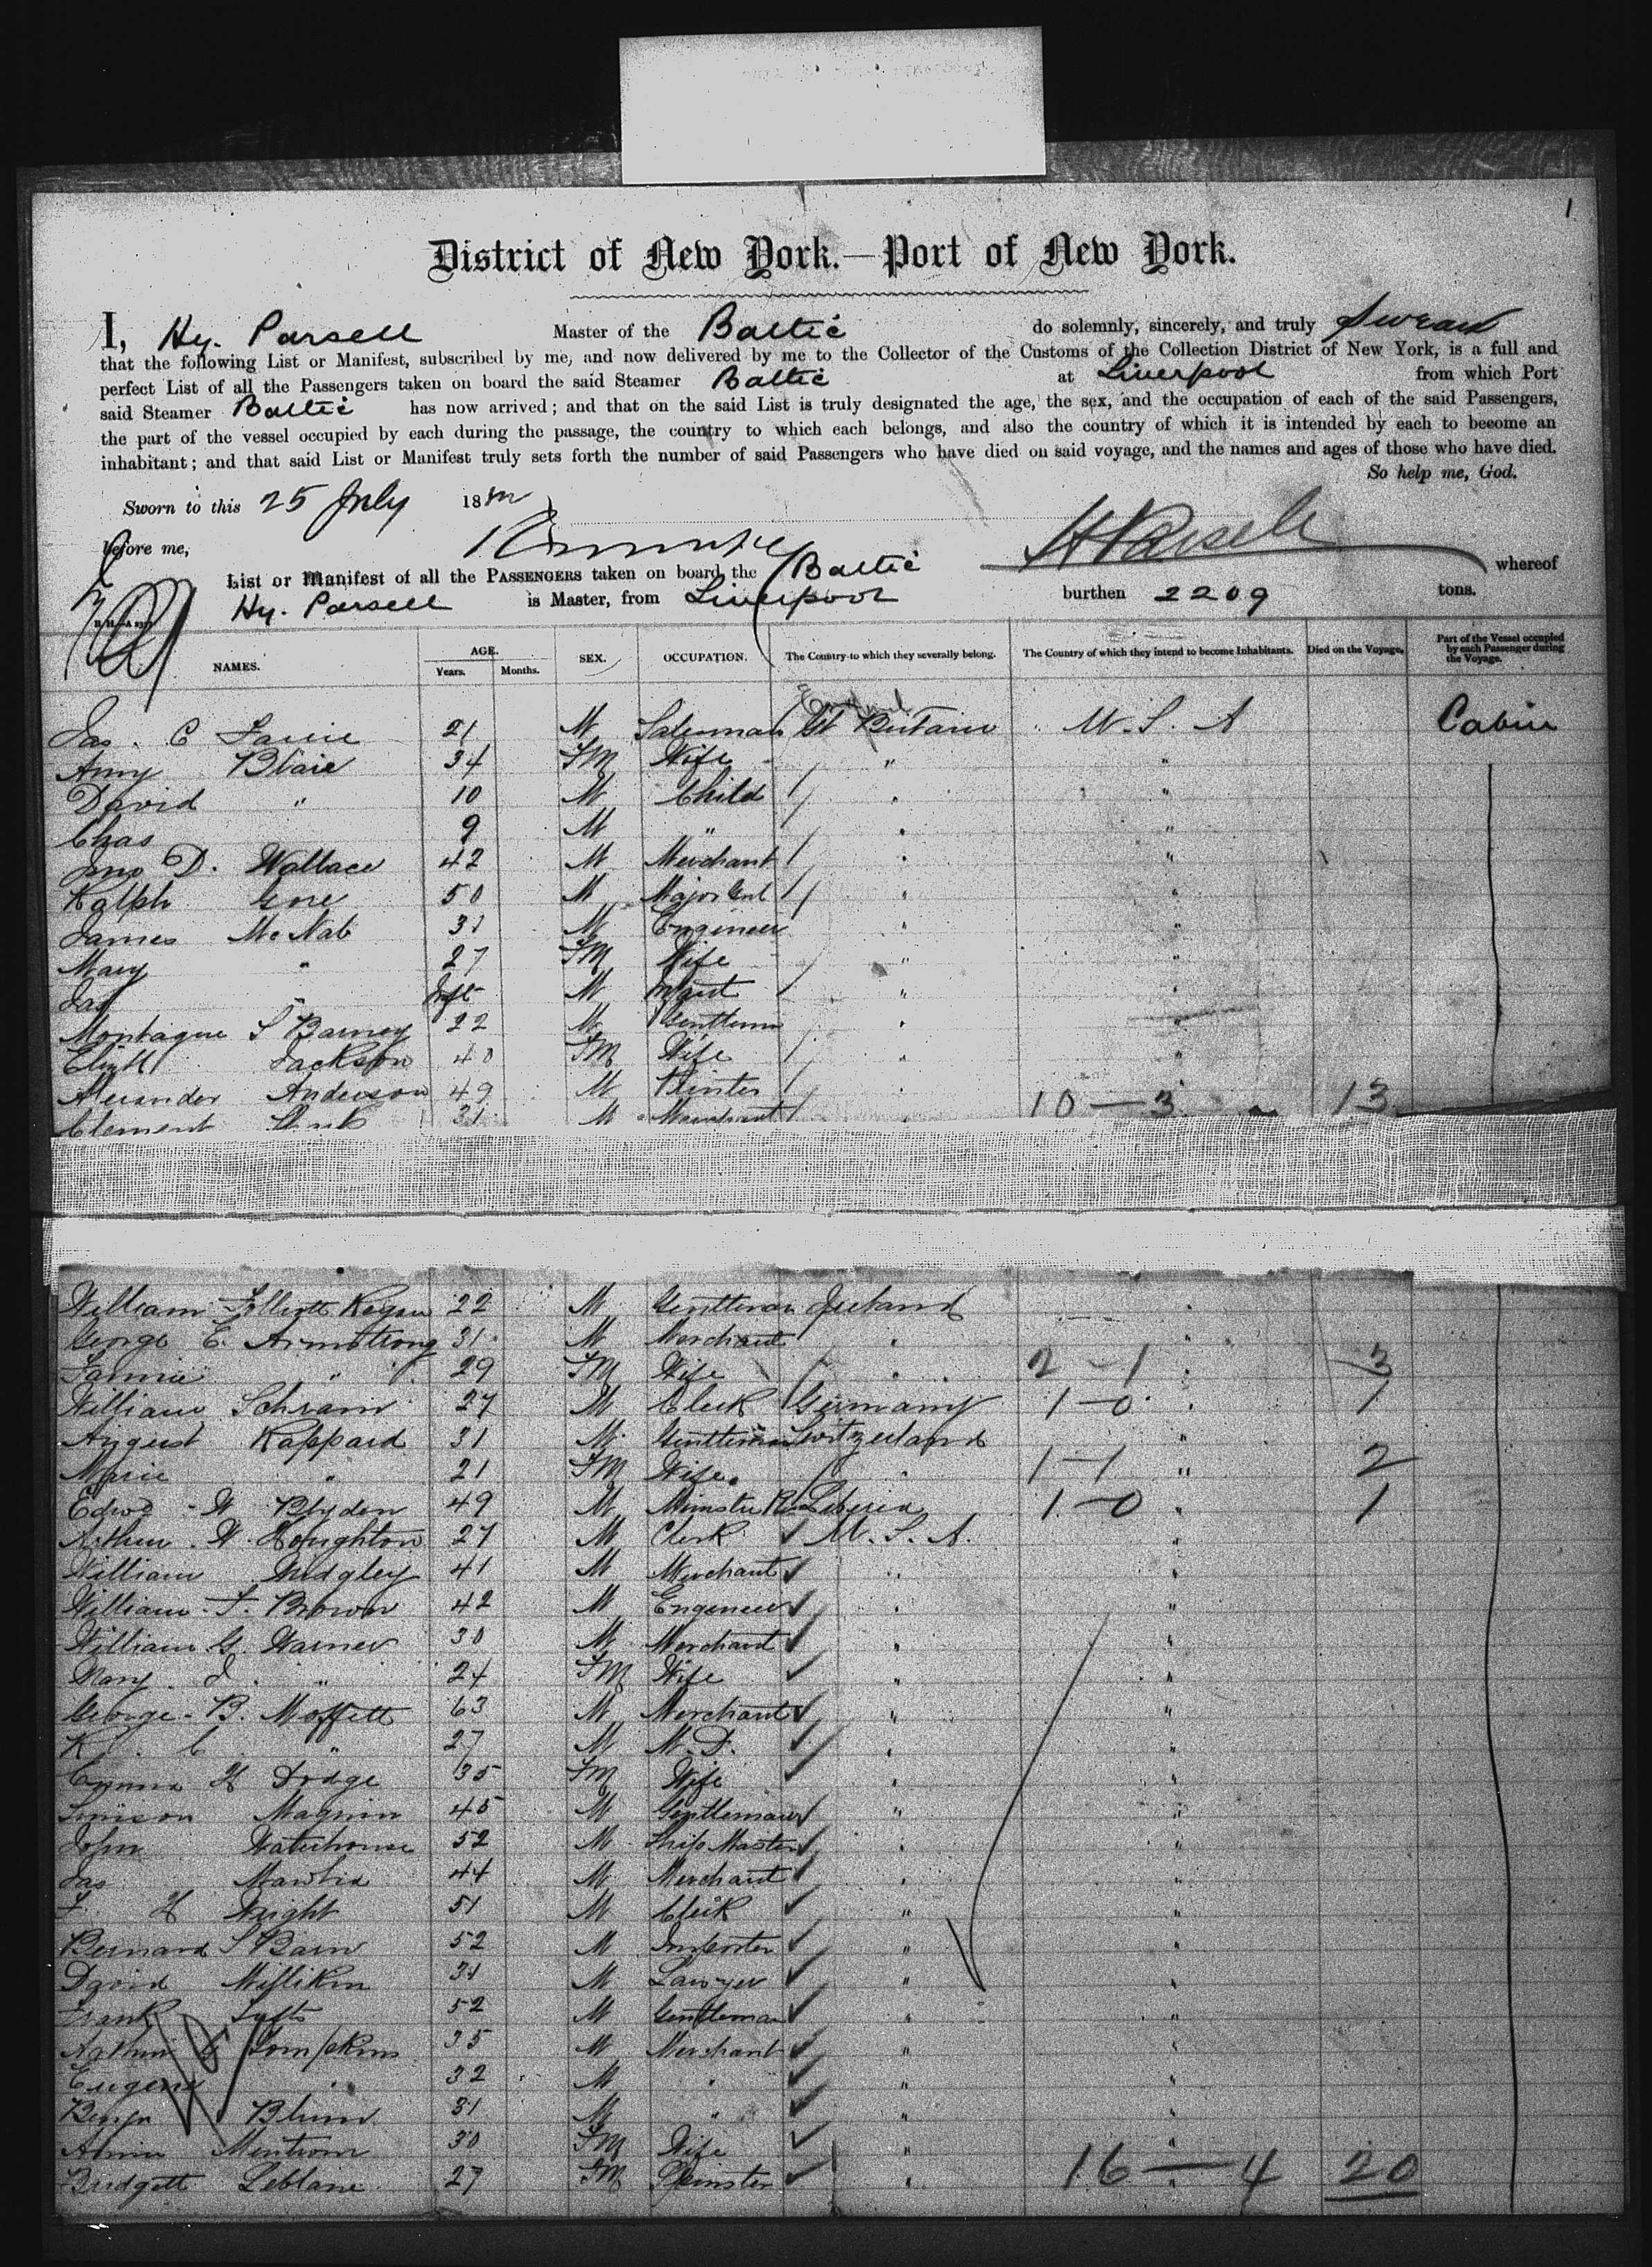 1
District of New York.—Port of New York.
I, Hy. Parsell Master of the Baltic do solemnly, sincerely, and truly Swear
that the following List or Manifest, subscribed by me, and now delivered by me to the Collector of the Customs of the Collection District of New York, is a full and
perfect List of all the Passengers taken on board the said Steamer Baltic at Liverpool from which Port
said Steamer Baltic has now arrived; and that on the said List is truly designated the age, the sex, and the occupation of each of the said Passengers,
the part of the vessel occupied by each during the passage, the country to which each belongs, and also the country of which it is intended by each to become an
inhabitant; and that said List or Manifest truly sets forth the number of said Passengers who have died on said voyage, and the names and ages of those who have died.
So help me, God.
Sworn to this 25 July 188
before me, H Parsell
List or Manifest of all the PASSENGERS taken on board the Baltic whereof
Hy. Parsell is Master, from Liverpool burthen 2209 tons.
NAMES. AGE. Years. Months. SEX. OCCUPATION. The Country to which they severally belong. The Country of which they intend to become Inhabitants. Died on the Voyage. Part of the Vessel occupied by each Passenger during the Voyage.
Jas. C 21 M Salesman Gt Britain U.S.A Cabin
Amy Blair 34 FM Wife " "
David " 10 M Child " "
Chas 9 M " " "
Jno D. Wallace 42 M Merchant " "
Ralph Gore 50 M Major Genl " "
James McNab 31 M Engineer " "
Mary " 27 FM Wife " "
Jas " Inft M Infant " "
Montague S Barney 22 M Gentleman " "
Jackson 40 FM Wife " "
Alexander Anderson 49 M Printer " "
Clement 31 M Merchant " 10—3 " 13
William Regan 22 M Gentleman Ireland "
George E. Armstrong 31 M Merchant " "
Fannie " 29 FM Wife " 2-1 " 3
William Schram 27 M Clerk Germany 1-0 " 1
August Rappard 31 M Gentleman Switzerland "
Marie " 21 FM Wife " 1-1 " 2
Edwd W Blyden 49 M Minister Liberia 1-0 " 1
Arthur W. Houghton 27 M Clerk U.S.A. "
William Midgley 41 M Merchant " "
William F. Brown 42 M Engineer " "
William G. Warner 30 M Merchant " "
Mary J. " 24 FM Wife " "
George B. Moffett 63 M Merchant " "
C " 27 M M.D. " "
Emma H Dodge 35 FM Wife " "
Magnin 45 M Gentleman " "
John Waterhouse 52 M Ship Master " "
Jas 44 M Merchant " "
F. H Wright 51 M Clerk " "
Bernard S Barn 52 M Importer " "
David Millikin 31 M Lawyer " "
Frank 52 M Gentleman " "
Arthur Tompkins 35 M Merchant " "
Eugene " 32 M " " "
Benjn Blum 31 M " " "
Annie 30 FM Wife " "
Bridgett Leblanc 27 FM Spinster " 16—4 " 20